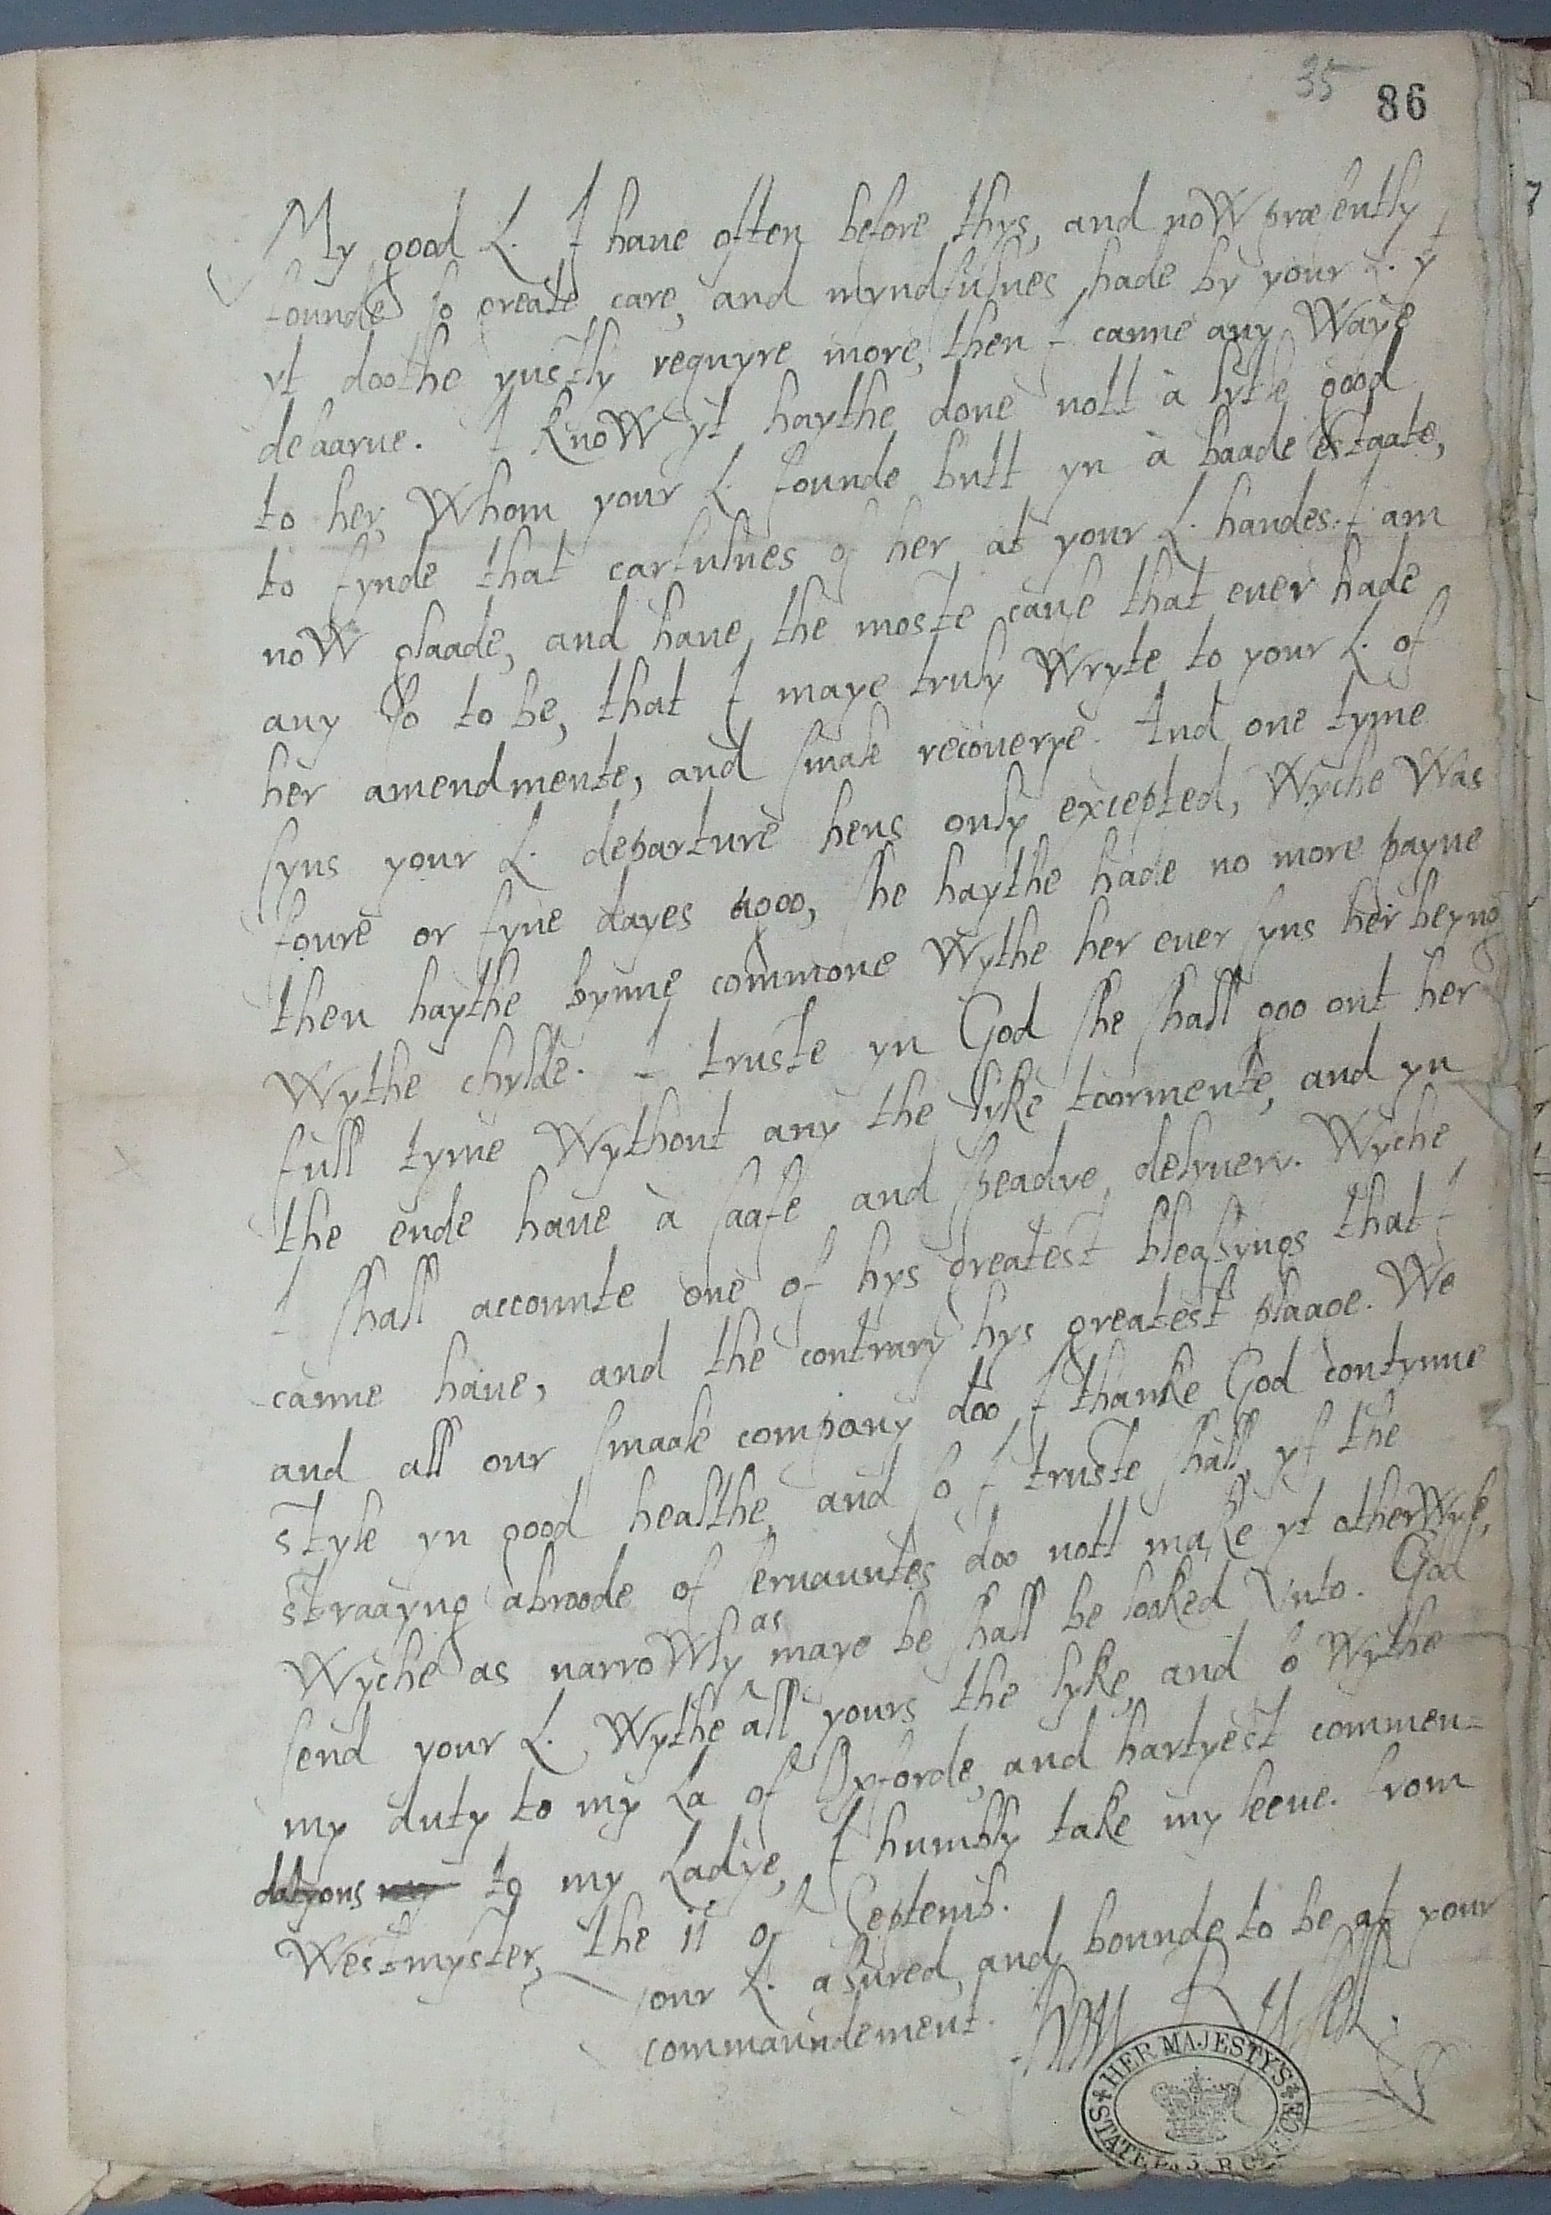 35 86
My good L. I haue often before thys, and noW præsently
founde so greate care, and myndfulnes hade by your L. yt
yt doothe yustly requyre more, then I canne any Waye
desaarue. I knoW yt haythe done nott à lytle good
to her, Whom your L. founde butt yn à baade estaate,
to fynde that carfulnes of her at your L. handes. I am
noW glaade, and haue the moste cause that euer hade
any so to be, that I maye truly Wryte to your L. of
her amendmente, and smale recouerye. And one tyme
syns your L. departure hens only excepted, Wyche Was
foure or fyue dayes agoo, she haythe hade no more payne
then haythe bynne commone Wythe her euer syns her beyng
Wythe chylde. I truste yn God she shall goo out her
full tyme Wythout any the lyke toormente, and yn
the ende haue à saafe and speadye delyuery. Wyche
I shall accounte one of hys greatest bleassyngs that I
canne haue, and the contrary hys greatest plaage. We
and all our smaale company doo I thanke God contynue
style yn good healthe, and so I truste shall, yf the
straayng abroode of seruauntes doo nott make yt otherWyse,
Wyche as narroWly as maye be shall be looked Vnto. God
send your L. Wythe all yours the lyke, and so Wythe
my duty to my La of Oxforde, and hartyest commen=
datyons to my Ladye, I humbly take my leeue. From
Westmyster, the 11 of Septemb.
your L. assured, and bounde to be at your
commaundement.
HER MAJESTY'S
STATE PAPER OFFICE